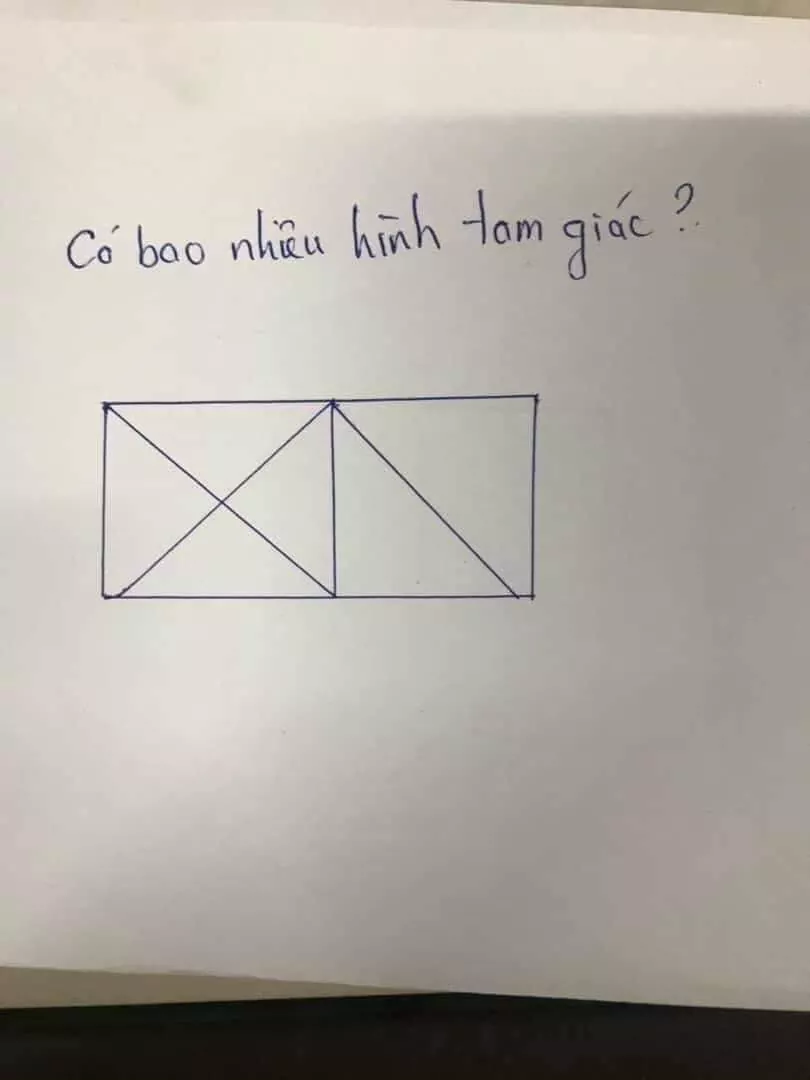 Có bao nhiêu hình tam giác ?